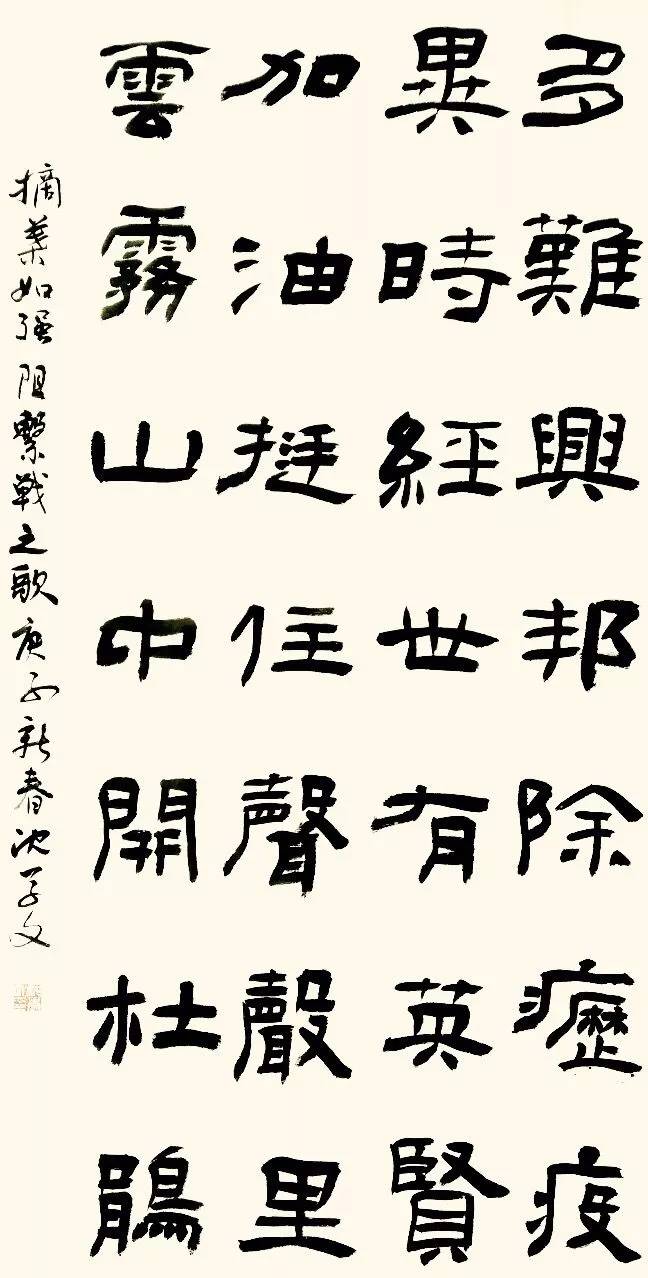 多難興邦除癧疫
異時經世有英賢
加油挺住聲聲里
雲霧山中開杜鵑
摘葉如强阻擊戦之歌庚子新春沈学文